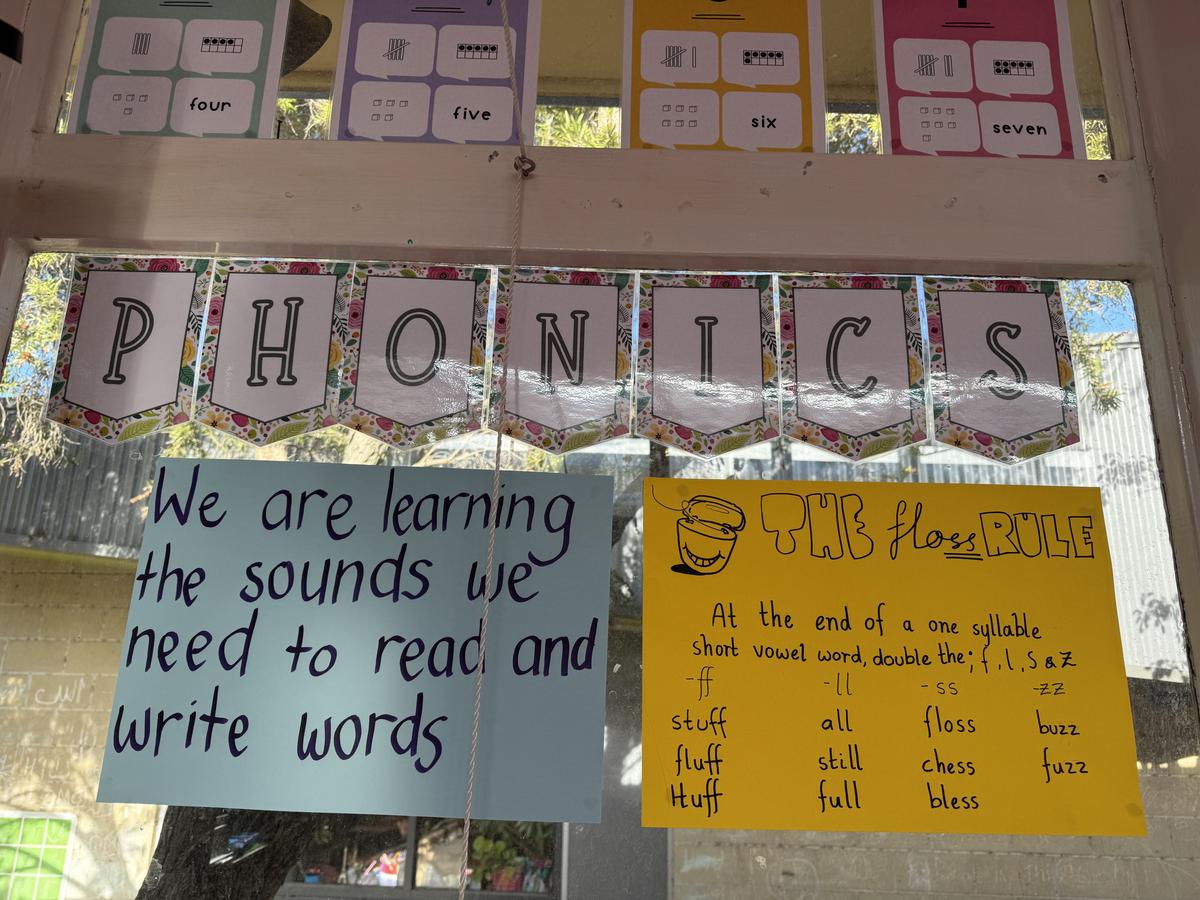 four
five
six
seven
PHONICS
We are learning
the sounds we
need to read and
write words
THE floss RULE
At the end of a one syllable
short vowel word, double the; f, l, s & z
-ff -ll -ss -zz
stuff all floss buzz
fluff still chess fuzz
Huff full bless